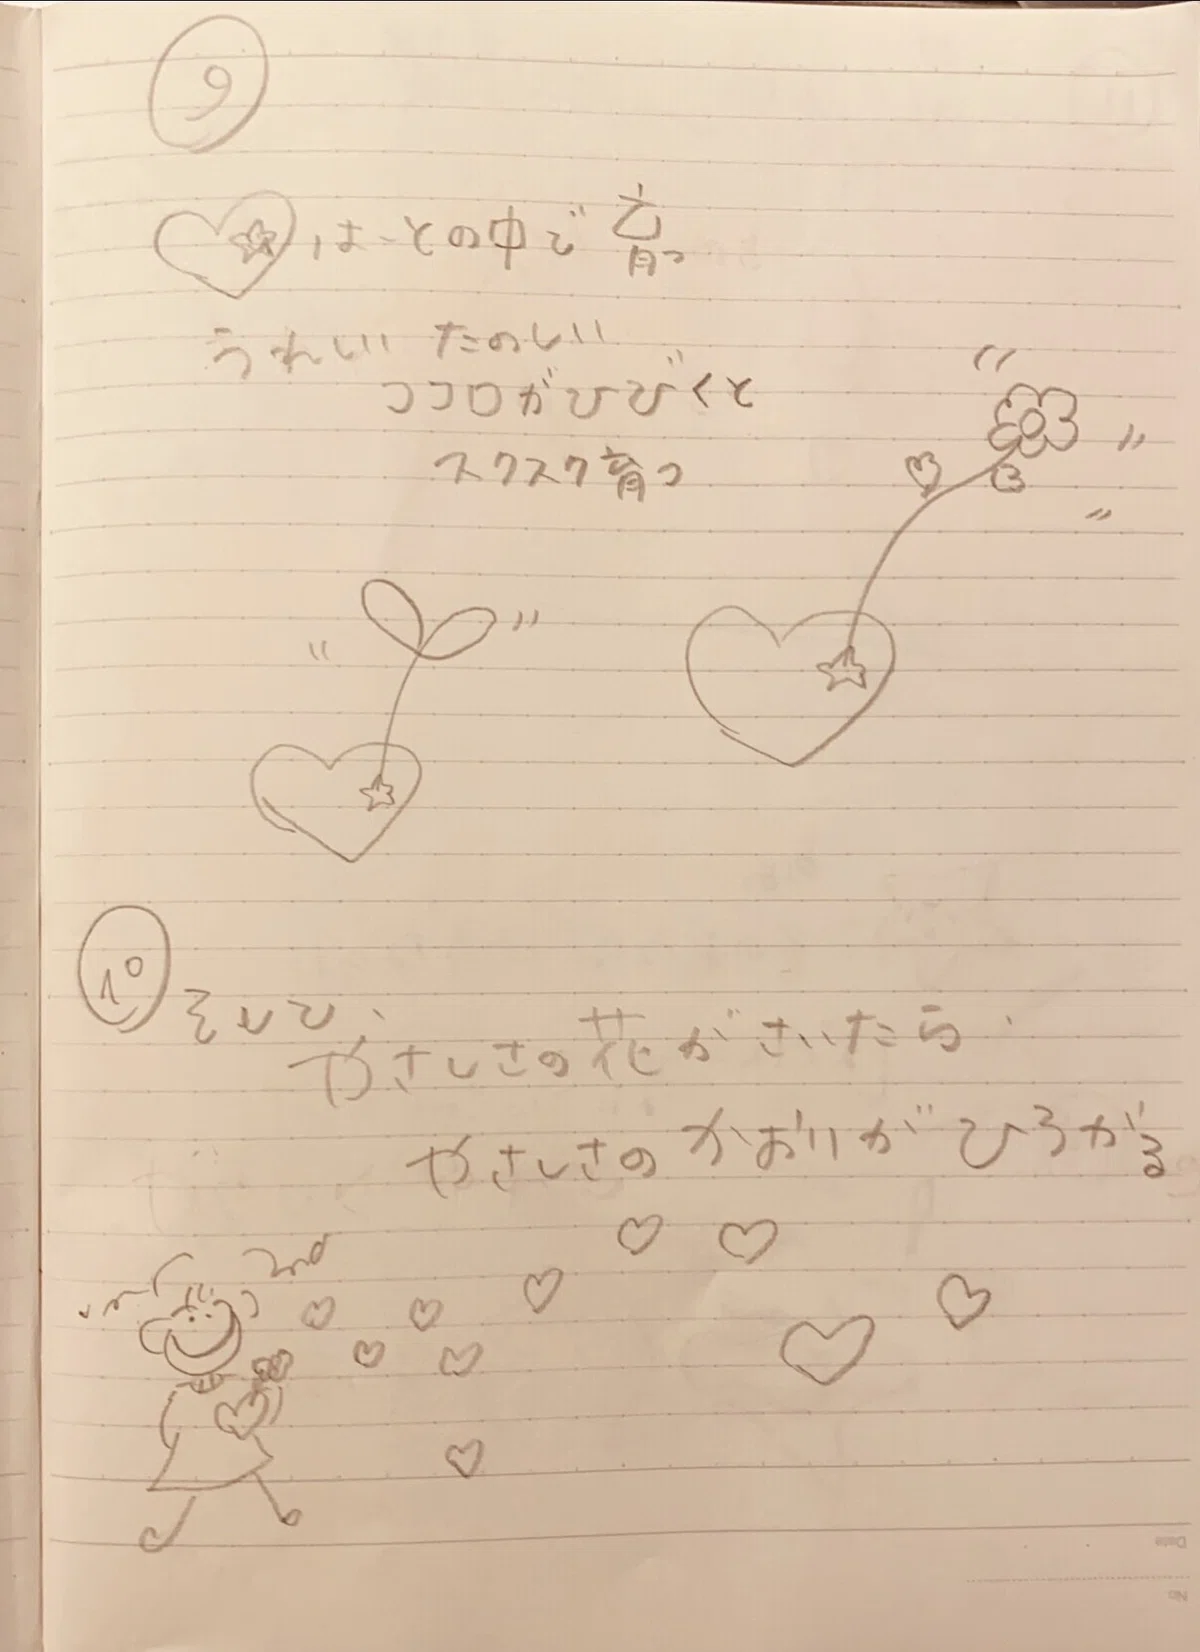 9
はーとの中で育つ
うれしい たのしい
ココロがひびくと
スクスク育つ
10
そして、
やさしさの花がさいたら、
やさしさのかおりがひろがる
Date
No